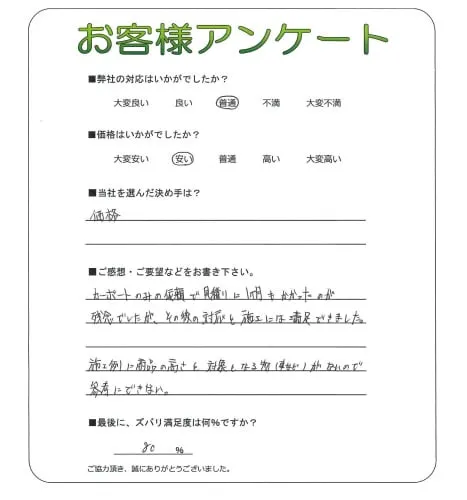 お客様アンケート
■弊社の対応はいかがでしたか？
大変良い 良い 普通 不満 大変不満
■価格はいかがでしたか？
大変安い 安い 普通 高い 大変高い
■当社を選んだ決め手は？
価格
■ご感想・ご要望などをお書き下さい。
カーポートのみの依頼で見積りに1ヶ月もかかったのが
残念でしたが、その後の対応と施工には満足できました。
施工例に商品の高さと対象となる物 がないので
参考にできない。
■最後に、ズバリ満足度は何％ですか？
80 ％
ご協力頂き、誠にありがとうございました。